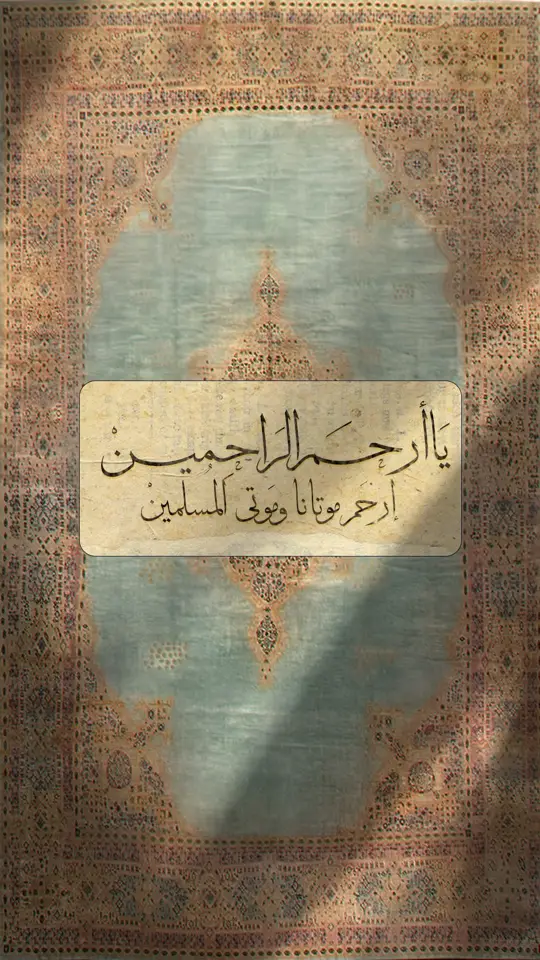 يَاأرحَم الرَاحمينْ
إرحَم موتانا وَموَتى المُسلمينْ